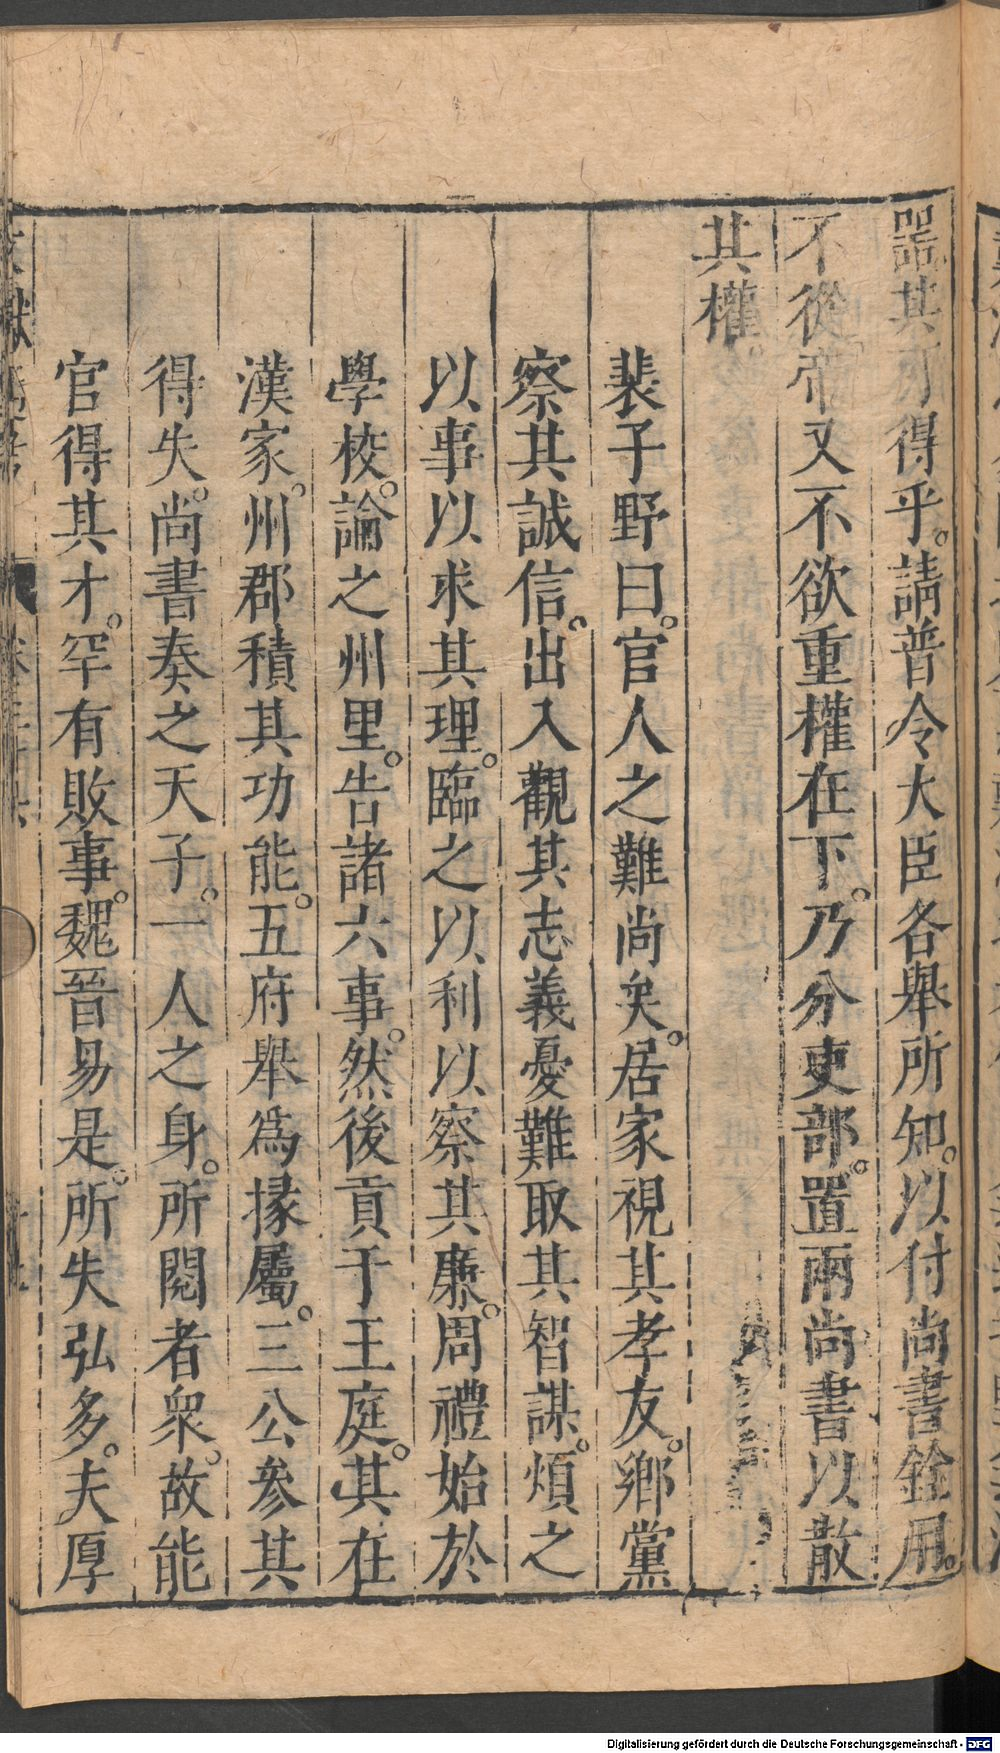 器其可得乎。請普令大臣各舉所知。以付尚書銓用。
不從。帝又不欲重權在下。乃分吏部。置兩尚書以散
其權。
裴子野曰。官人之難尚矣。居家視其孝友。鄉黨
察其誠信。出入觀其志義憂難取其智謀。煩之
以事以求其理。臨之以利以察其廉。周禮始於
學校。論之州里。告諸六事。然後貢于王庭。其在
漢家。州郡積其功能。五府舉爲掾屬。三公參其
得失。尚書奏之天子。一人之身。所閱者衆。故能
官得其才。罕有敗事。魏晉易是。所失弘多。夫厚
Digitalisierung gefördert durch die Deutsche Forschungsgemeinschaft - DFG